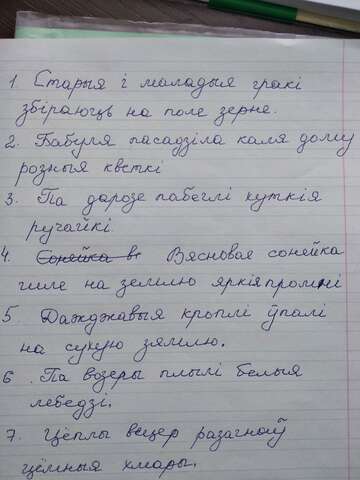 1. Старыя і маладыя гракі
збіраюць на поле зерне.
2. Бабуля пасадзіла каля дому
розныя кветкі
3. Па дарозе пабеглі хуткія
ручайкі.
4. Сонейка в Вясновае сонейка
шле на зямлю яркія промні
5. Дажджавыя кроплі ўпалі
на сухую зямлю.
6. Па возеры плылі белыя
лебедзі.
7. Цёплы вецер разагнаў
цёмныя хмары.